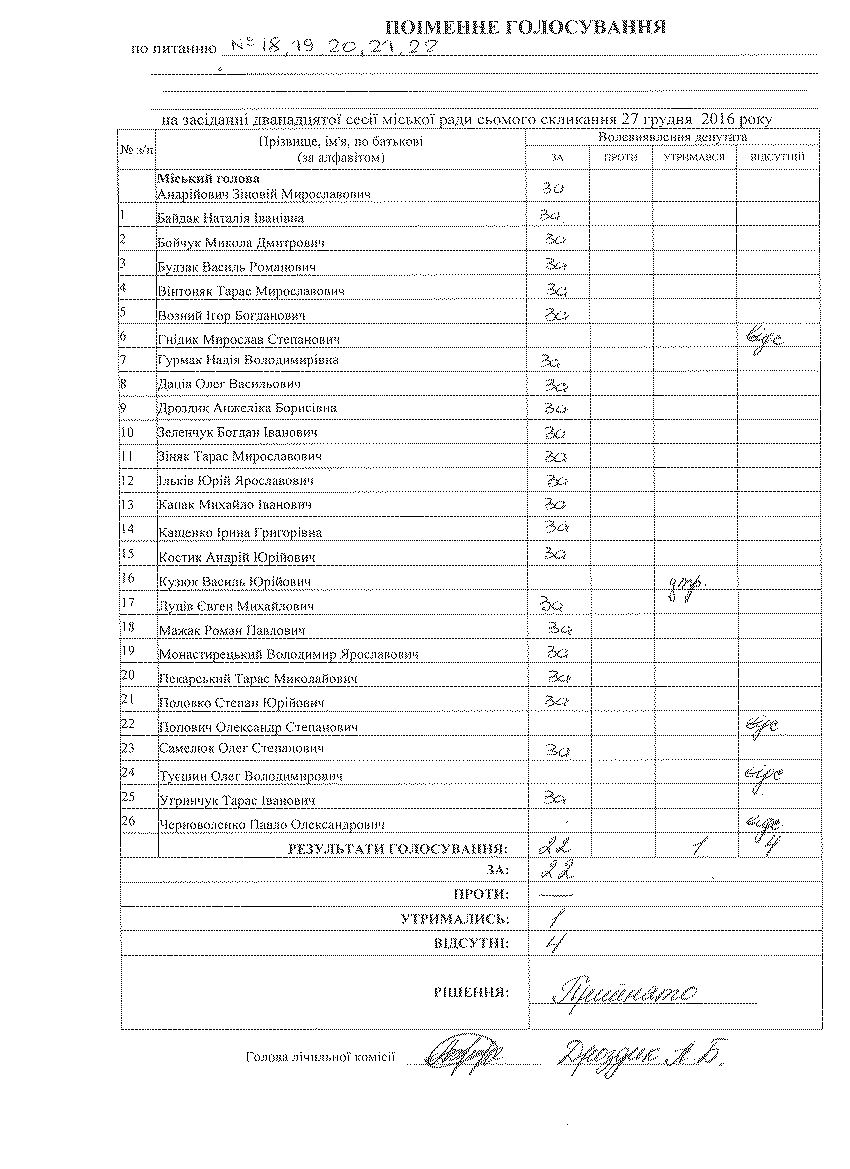 ПОІМЕННЕ ГОЛОСУВАННЯ
по питанню № 18, 19 20, 21, 22
на засіданні дванадцятої сесії міської ради сьомого скликання 27 грудня 2016 року
№ з/п Прізвище, ім'я, по батькові (за алфавітом) Волевиявлення депутата
ЗА ПРОТИ УТРИМАВСЯ ВІДСУТНІЙ
Міський голова
Андрійович Зіновій Мирославович За
1 Байдак Наталія Іванівна За
2 Бойчук Микола Дмитрович За
3 Будзак Василь Романович За
4 Вінтоняк Тарас Мирославович За
5 Возний Ігор Богданович За
6 Гнідик Мирослав Степанович відс
7 Гурмак Надія Володимирівна За
8 Даців Олег Васильович За
9 Дроздик Анжеліка Борисівна За
10 Зеленчук Богдан Іванович За
11 Зіняк Тарас Мирославович За
12 Ільків Юрій Ярославович За
13 Капак Михайло Іванович За
14 Кащенко Ірина Григорівна За
15 Костик Андрій Юрійович За
16 Кузюк Василь Юрійович утр.
17 Луців Євген Михайлович За
18 Мажак Роман Павлович За
19 Монастирецький Володимир Ярославович За
20 Пекарський Тарас Миколайович За
21 Половко Степан Юрійович За
22 Попович Олександр Степанович відс
23 Самелюк Олег Степанович За
24 Туєшин Олег Володимирович відс
25 Угринчук Тарас Іванович За
26 Черноволенко Павло Олександрович відс
РЕЗУЛЬТАТИ ГОЛОСУВАННЯ: 22 1 4
ЗА: 22
ПРОТИ: —
УТРИМАЛИСЬ: 1
ВІДСУТНІ: 4
РІШЕННЯ: Прийнято
Голова лічильної комісії Дроздик А. Б.